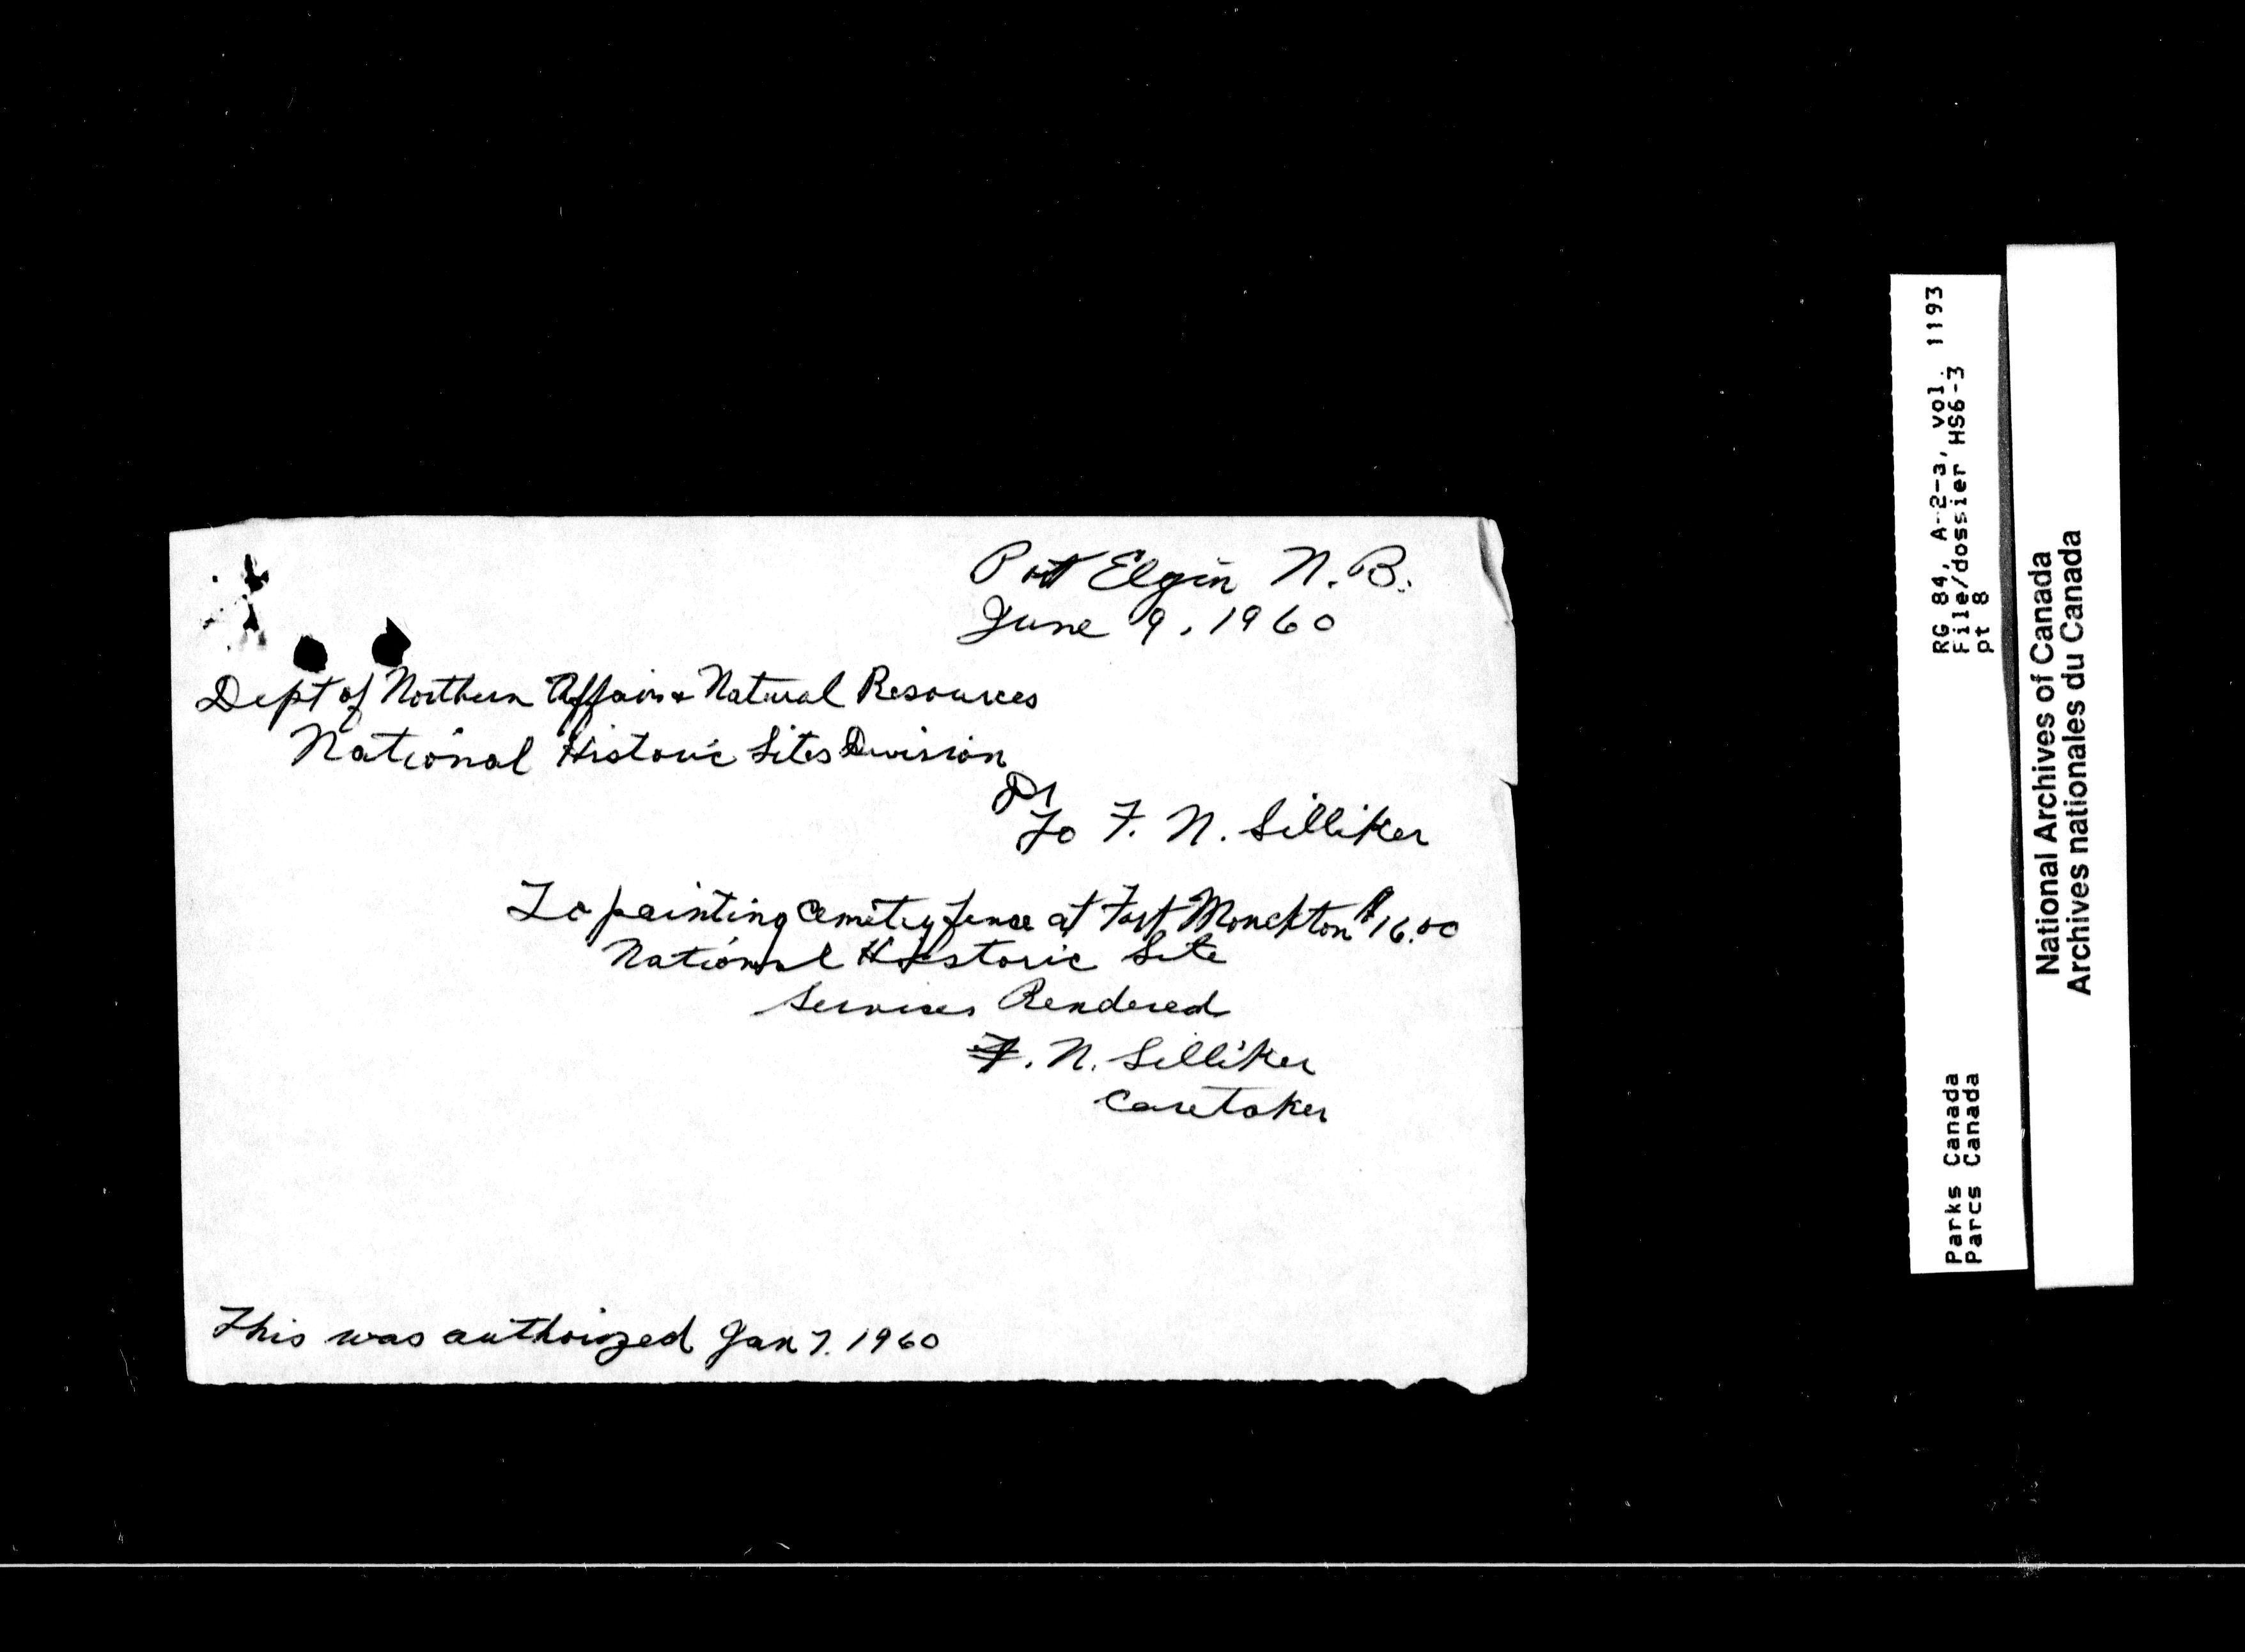 Port Elgin N. B.
June 9, 1960
Dept of Northern Affairs & Natural Resources
National Historic Sites Division
Dr
To F. N. Silliker
To painting Cemetery fence at Fort Monckton $16.00
National Historic Site
Services Rendered
F. N. Silliker
Caretaker
This was authorized Jan 7. 1960
RG 84, A-2-a, vol. 1193
File/dossier HS6-3
pt 8
Parks Canada
Parcs Canada
National Archives of Canada
Archives nationales du Canada